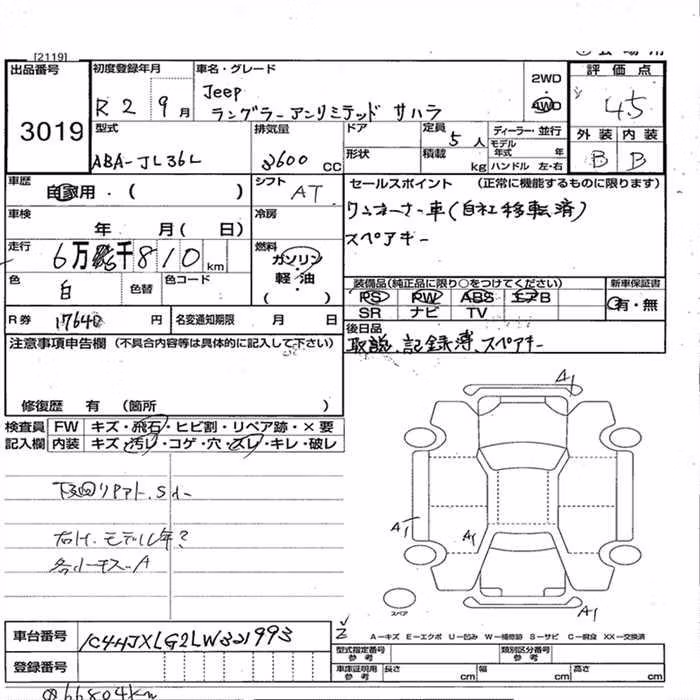 [2119]
出品番号 3019
初度登録年月 R2 9月
車名・グレード Jeep
ラングラーアンリミテッド サハラ
2WD
4WD
評価点 4.5
外装 内装
B B
型式 ABA-JL36L
排気量 3600 CC
ドア
形状
定員 5人
積載 kg
ディーラー・並行
モデル年式 年
ハンドル 左・右
車歴 自家用・( )
シフト AT
セールスポイント (正常に機能するものに限ります)
ワンオーナー車(自社移転済)
スペアキー
車検 年 月( 日)
冷房
走行 6万 千810km
燃料 ガソリン
軽・油
・( )
色 白 色替 色コード
装備品(純正品に限り○をつけてください)
PS PW ABS エアB
SR ナビ TV
新車保証書
有・無
R券 17640円
名変通知期限 月 日
後日品
取説、記録簿、スペアキー
注意事項申告欄(不具合内容等は具体的に記入して下さい)
修復歴 有 (箇所 )
検査員記入欄
FW キズ・飛石・ヒビ割・リペア跡・×要
内装 キズ・汚レ・コゲ・穴・スレ・キレ・破レ
A1
A1
A1
A1
スペア
A-キズ E-エクボ U-凹み W-補修跡 S-サビ C-腐食 XX-交換済
車台番号 1C4HJXLG2LW321993
登録番号
型式指定番号 参考
類別区分番号 参考
車庫証明用 参考 長さ cm 幅 cm 高さ cm
66804km